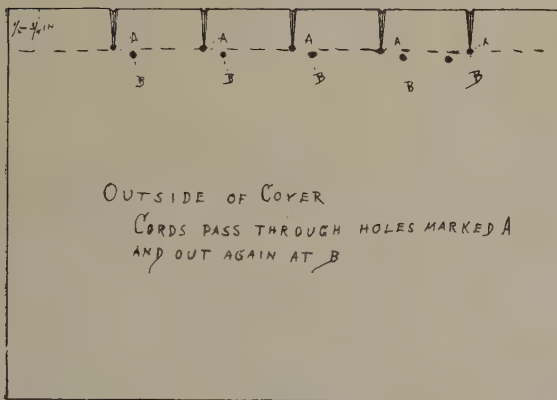 ½-¾ IN A A A A A
B B B B B
OUTSIDE OF COVER
CORDS PASS THROUGH HOLES MARKED A
AND OUT AGAIN AT B